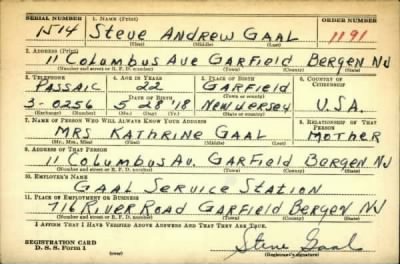 SERIAL NUMBER 1. NAME (Print) ORDER NUMBER
1514 Steve Andrew Gaal 1191
(First) (Middle) (Last)
2. ADDRESS (Print)
11 Columbus Ave Garfield Bergen NJ
(Number and street or R. F. D. number) (Town) (County) (State)
3. TELEPHONE 4. AGE IN YEARS 5. PLACE OF BIRTH 6. COUNTRY OF CITIZENSHIP
Passaic 22 Garfield
DATE OF BIRTH
3-0256 5 28 '18 New Jersey U.S.A.
(Exchange) (Number) (Mo.) (Day) (Yr.) (State or country)
7. NAME OF PERSON WHO WILL ALWAYS KNOW YOUR ADDRESS 8. RELATIONSHIP OF THAT PERSON
Mrs Kathrine Gaal Mother
(Mr., Mrs., Miss) (First) (Middle) (Last)
9. ADDRESS OF THAT PERSON
11 Columbus Av. Garfield Bergen NJ
(Number and street or R. F. D. number) (Town) (County) (State)
10. EMPLOYER'S NAME
Gaal Service Station
11. PLACE OF EMPLOYMENT OR BUSINESS
716 River Road Garfield Bergen NJ
(Number and street or R. F. D. number) (Town) (County) (State)
I AFFIRM THAT I HAVE VERIFIED ABOVE ANSWERS AND THAT THEY ARE TRUE.
REGISTRATION CARD
D. S. S. Form 1 Steve Gaal
(Registrant's signature)